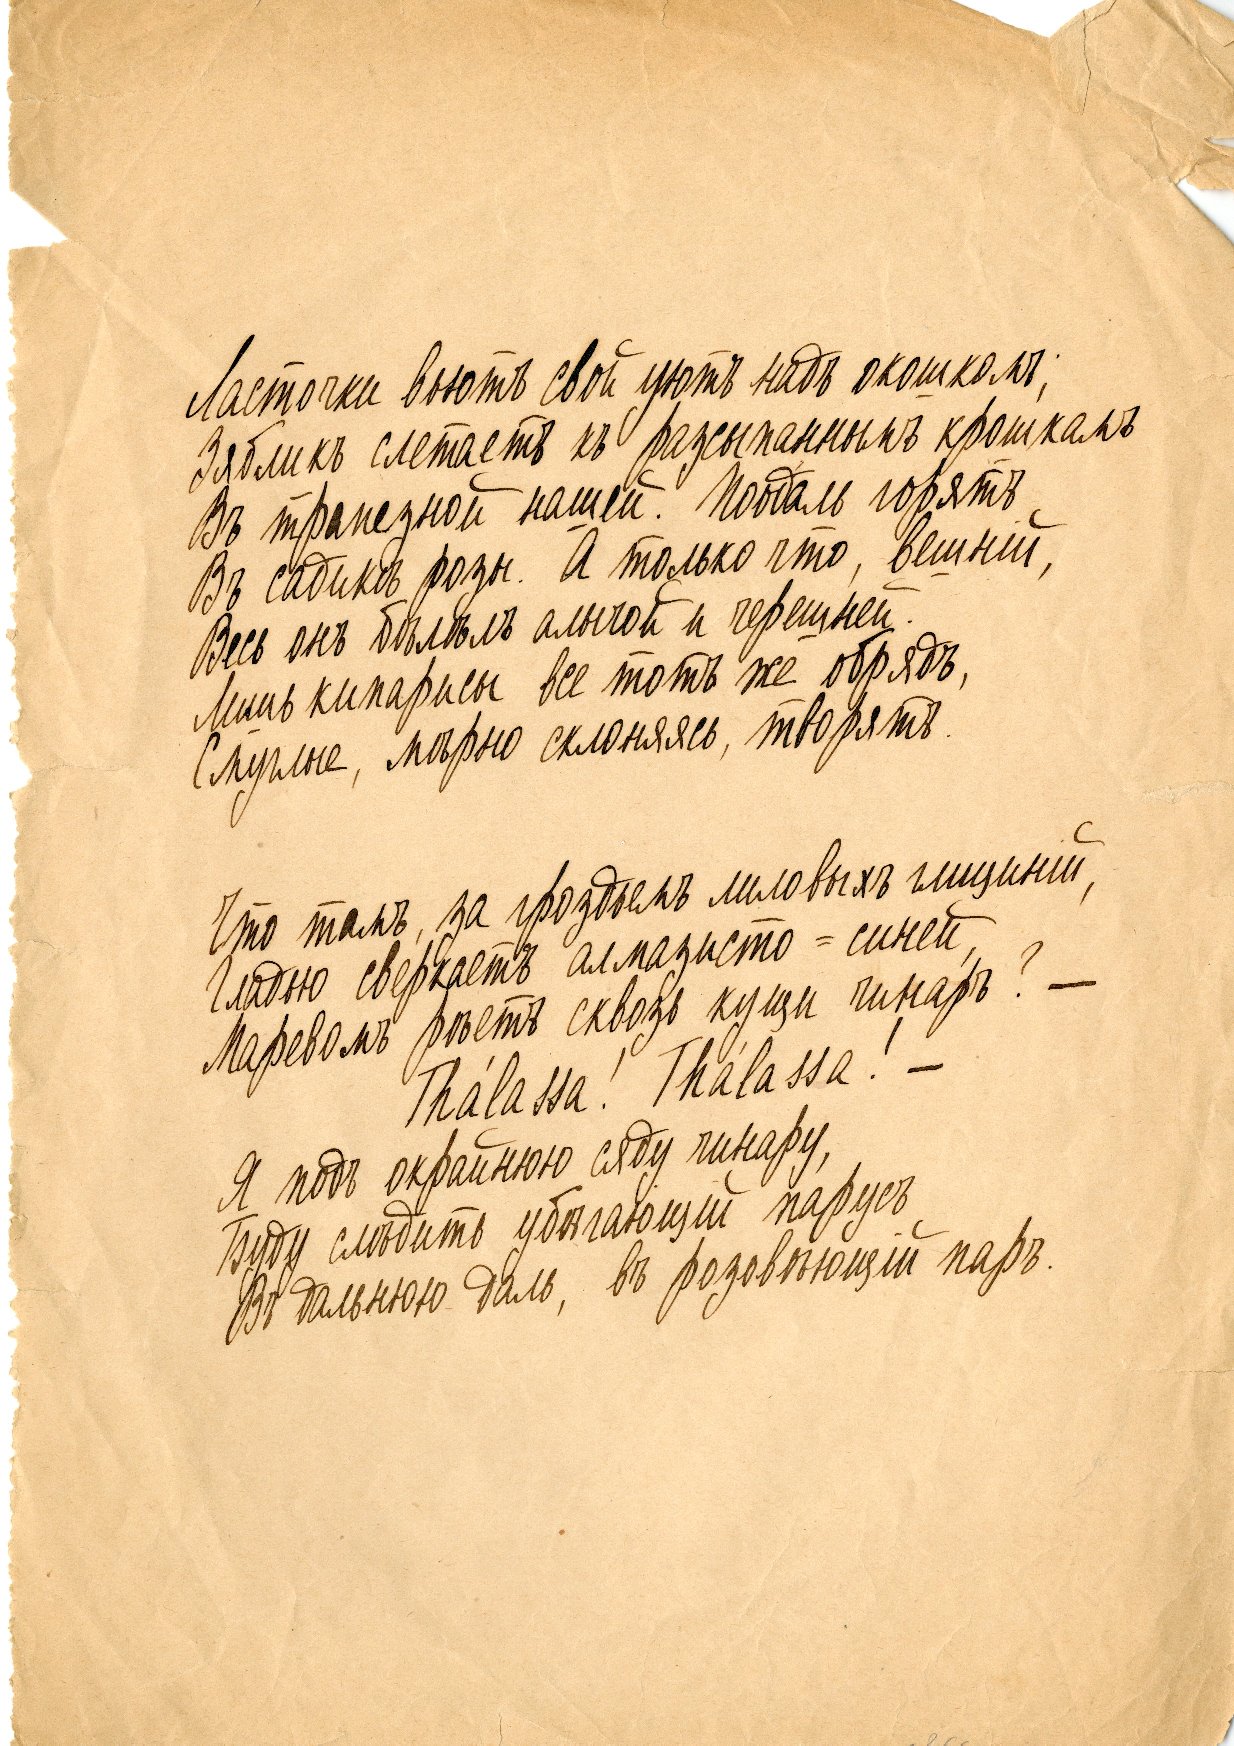 Ласточки вьютъ свой уютъ надъ окошкомъ;
Зябликъ слетаетъ къ разсыпаннымъ крошкамъ
Въ трапезной нашей. Поодаль горятъ
Въ садикѣ розы. А только что, вешній,
Весь онъ бѣлѣлъ алычой и черешней.
Лишь кипарисы все тотъ же обрядъ,
Смуглые, мѣрно склоняясь, творятъ.
Что тамъ, за гроздьемъ лиловыхъ глициній,
Гладью сверкаетъ алмазисто=синей,
Маревомъ рѣетъ сквозь кущи чинаръ? —
Thálassa! Thálassa! —
Я подъ окрайнюю сяду чинару,
Буду слѣдить убѣгающій парусъ
Въ дальнюю даль, въ розовѣющій паръ.